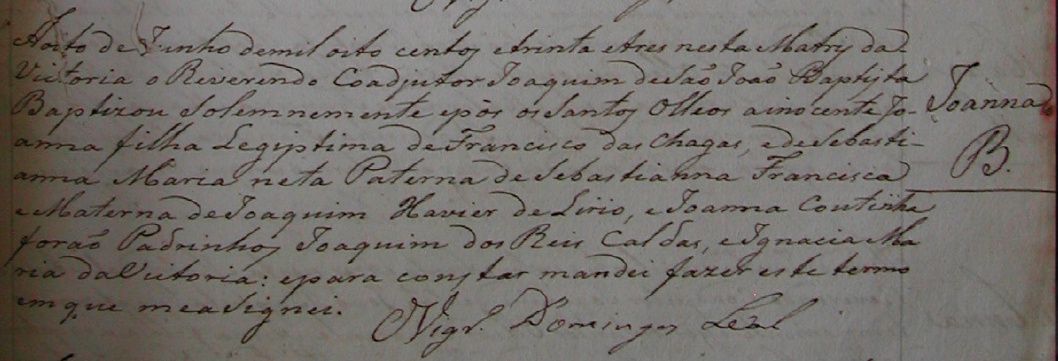 Aoito de Junho demil oito centos etrinta etres nesta Matriz da
Victoria o Reverendo Coadjutor Joaquim deSão João Baptista
Baptizou Solemnemente epôs os Santos Olleos ainocente Jo-
anna filha Legiptima de Francisco das Chagas, edeSebasti-
anna Maria neta Paterna de Sebastianna Francisca
eMaterna deJoaquim Havier de Lirio, eJoanna Coutinha
forão Padrinhos Joaquim dos Reis Caldas, eIgnacia Ma
ria daVictoria: epara constar mandei fazer este termo
emque meaSignei.
Vigr.º Domingos Leal
Joanna
B.